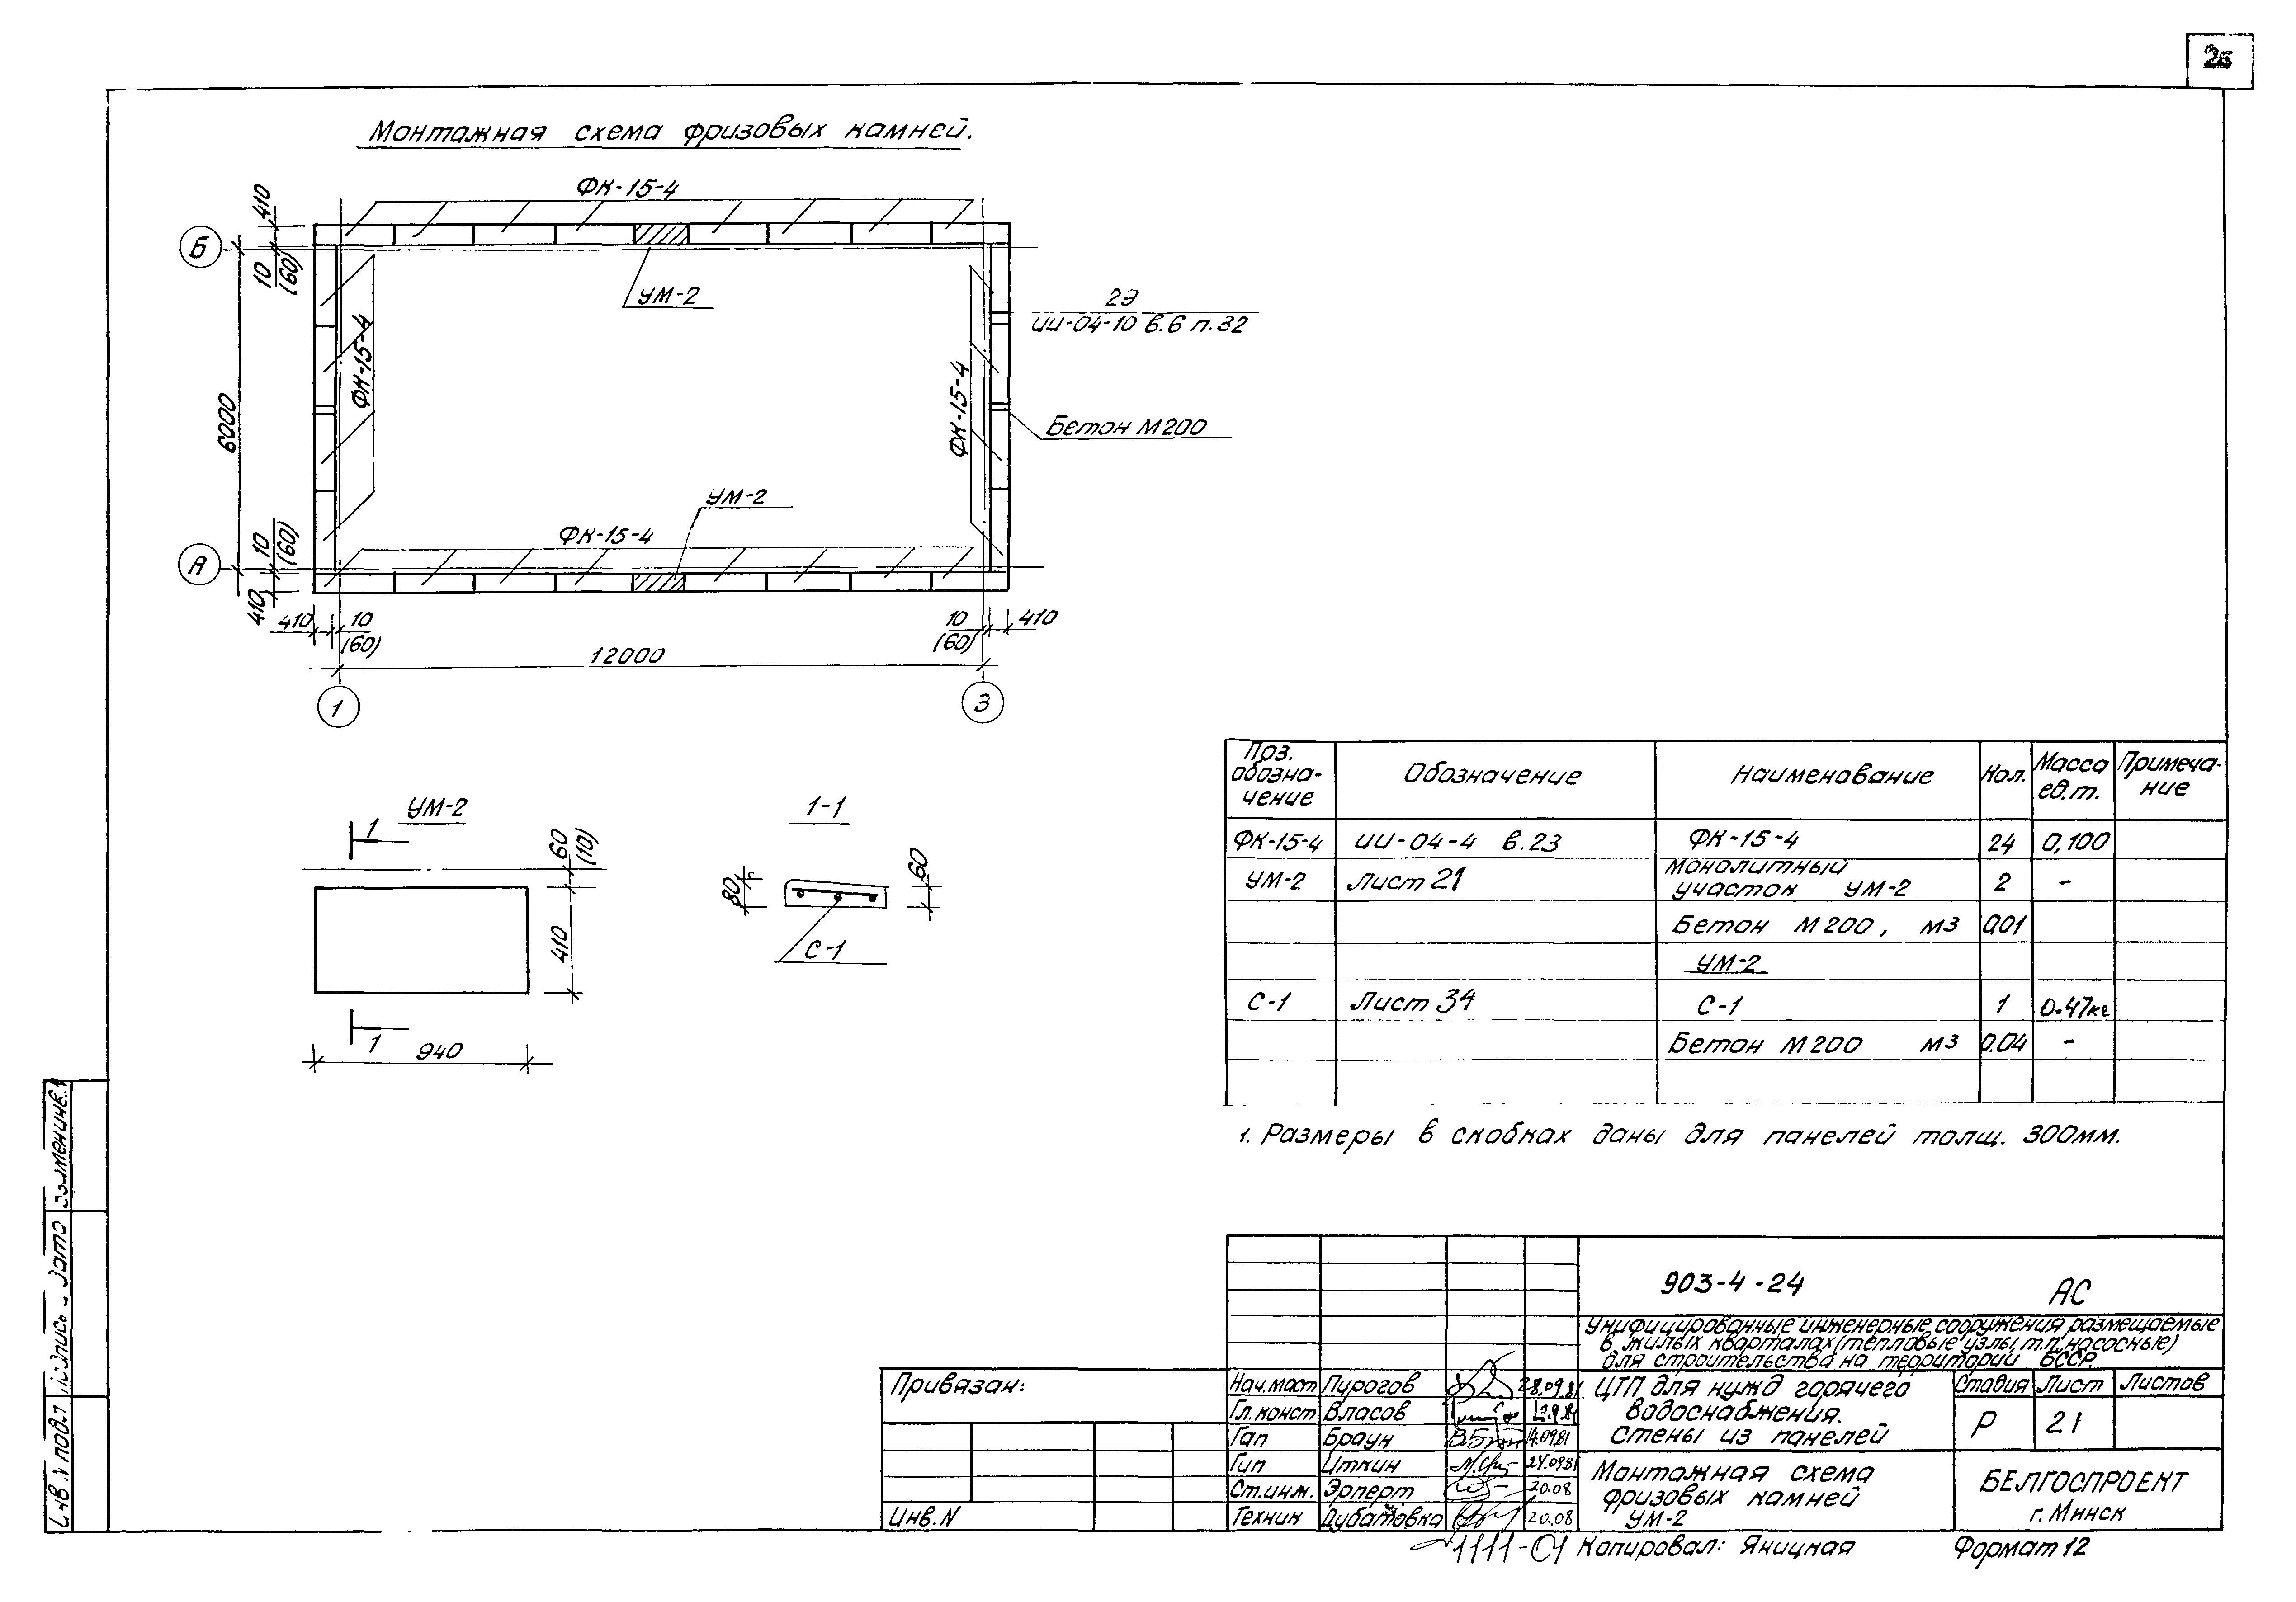 Монтажная схема фризовых камней.
ФК-15-4
410
Б
10
(60)
УМ-2
ФК-15-4
29
ИИ-04-10 в.6 п.32
ФК-15-4
Бетон М200
6000
УМ-2
ФК-15-4
10
(60)
А
410
410
10
(60)
10
(60)
410
12000
1
3
УМ-2
1
60
(10)
410
1
940
1-1
80
60
С-1
Поз. обозна-чение
Обозначение
Наименование
Кол.
Масса ед.т.
Примеча-ние
ФК-15-4 ИИ-04-4 в.23 ФК-15-4 24 0,100
УМ-2 Лист 21 Монолитный участок УМ-2 2 -
Бетон М200, м3 0,01
УМ-2
С-1 Лист 34 С-1 1 0.47кг
Бетон М200 м3 0.04 -
1. Размеры в скобках даны для панелей толщ. 300мм.
903-4-24
АС
Унифицированные инженерные сооружения размещаемые
в жилых кварталах (тепловые узлы, т.п., насосные)
для строительства на территории БССР.
Привязан:
Инв.N
Нач.маст Пирогов 28.09.81
Гл.конст Власов
Гап Браун 14.09.81
Гип Иткин 24.09.81
Ст.инж. Эрперт 20.08
Техник Дубатовка 20.08
ЦТП для нужд горячего
водоснабжения.
Стены из панелей
Стадия Лист Листов
Р 21
Монтажная схема
фризовых камней
УМ-2
БЕЛГОСПРОЕКТ
г. Минск
1111-01 Копировал: Яницкая Формат 12